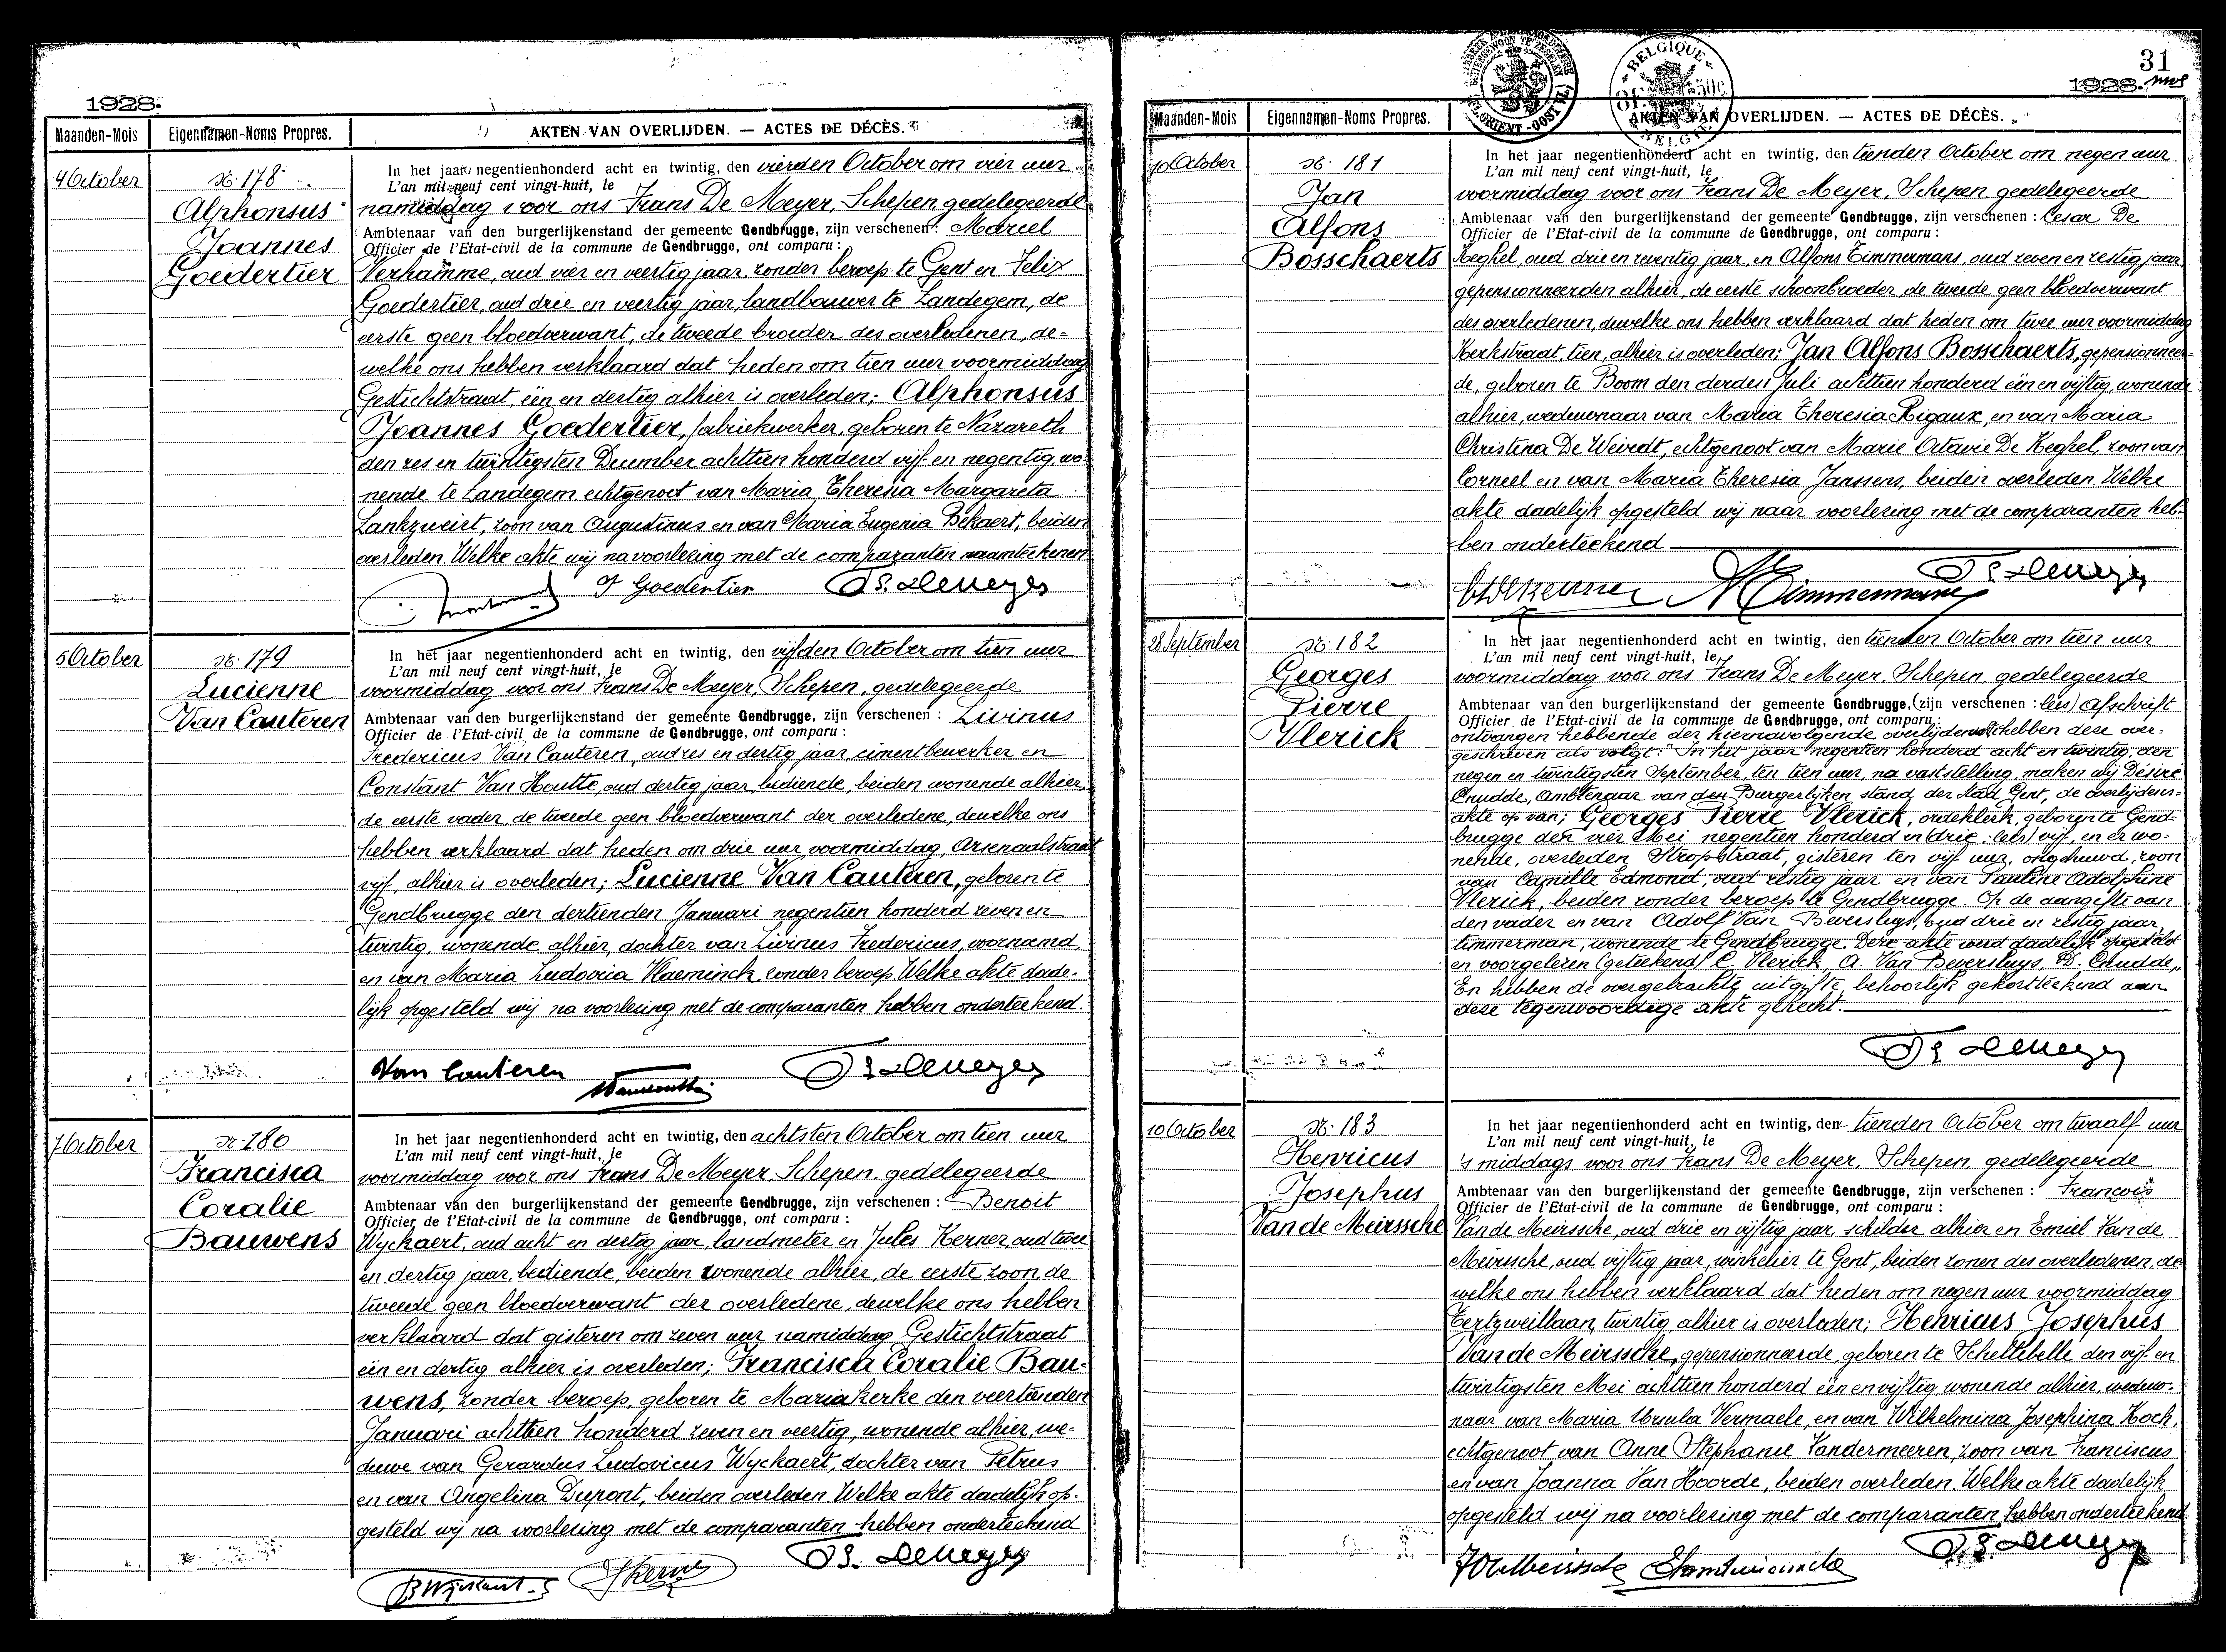 1928.
Maanden-Mois
Eigennamen-Noms Propres.
AKTEN VAN OVERLIJDEN. — ACTES DE DÉCÈS.
4 October
No 178
Alphonsus
Joannes
Goedertier
In het jaar negentienhonderd acht en twintig, den vierden October om vier uur
L'an mil neuf cent vingt-huit, le
namiddag voor ons Frans De Meyer, Schepen, gedelegeerde
Ambtenaar van den burgerlijkenstand der gemeente Gendbrugge, zijn verschenen: Marcel
Officier de l'Etat-civil de la commune de Gendbrugge, ont comparu:
Verhamme, oud vier en veertig jaar, zonder beroep te Gent en Felix
Goedertier, oud drie en veertig jaar, landbouwer te Landegem, de
eerste geen bloedverwant, de tweede broeder des overledenen, de-
welke ons hebben verklaard dat heden om tien uur voormiddag
Gestichtstraat, één en dertig alhier is overleden; Alphonsus
Joannes Goedertier, fabriekwerker, geboren te Nazareth
den zes en twintigsten December achttien honderd vijf en negentig, wo-
nende te Landegem, echtgenoot van Maria Theresia Margareta
zoon van Augustinus en van Maria Eugenia Bekaert, beiden
overleden. Welke akte wij na voorlezing met de comparanten naamteekenen
F Goedertier
Fs. De Meyer
5 October
No 179
Lucienne
Van Cauteren
In het jaar negentienhonderd acht en twintig, den vijfden October om tien uur
L'an mil neuf cent vingt-huit, le
voormiddag voor ons Frans De Meyer, Schepen, gedelegeerde
Ambtenaar van den burgerlijkenstand der gemeente Gendbrugge, zijn verschenen: Livinus
Officier de l'Etat-civil de la commune de Gendbrugge, ont comparu:
Fredericus Van Cauteren, oud zes en dertig jaar, cimentbewerker en
Constant Van Houtte, oud dertig jaar, bediende, beiden wonende alhier,
de eerste vader, de tweede geen bloedverwant der overledene, dewelke ons
hebben verklaard dat heden om drie uur voormiddag, Arsenaalstraat
vijf, alhier is overleden; Lucienne Van Cauteren, geboren te
Gendbrugge den dertienden Januari negentien honderd zeven en
twintig, wonende alhier, dochter van Livinus Fredericus, voornamd,
en van Maria Ludovica Vlaeminck, zonder beroep. Welke akte dade-
lijk opgesteld wij na voorlezing met de comparanten hebben onderteekend.
Van Cauteren
Fs. De Meyer
7 October
No 180
Francisca
Coralie
Bauwens
In het jaar negentienhonderd acht en twintig, den achtsten October om tien uur
L'an mil neuf cent vingt-huit, le
voormiddag voor ons Frans De Meyer, Schepen, gedelegeerde
Ambtenaar van den burgerlijkenstand der gemeente Gendbrugge, zijn verschenen: Benoit
Officier de l'Etat-civil de la commune de Gendbrugge, ont comparu:
Wyckaert, oud acht en dertig jaar, landmeter en Jules Kerner, oud twee
en dertig jaar, bediende, beiden wonende alhier, de eerste zoon, de
tweede geen bloedverwant der overledene, dewelke ons hebben
verklaard dat gisteren om zeven uur namiddag Gestichtstraat
één en dertig alhier is overleden; Francisca Coralie Bau-
wens, zonder beroep, geboren te Mariakerke den veertienden
Januari achttien honderd zeven en veertig, wonende alhier, we-
duwe van Gerardus Ludovicus Wyckaert, dochter van Petrus
en van Angelina Dupont, beiden overleden. Welke akte dadelijk op-
gesteld wij na voorlezing met de comparanten hebben onderteekend
B Wyckaert
J Kerner
Fs. De Meyer
31
1928.
BELGIQUE
BELGIE
Maanden-Mois
Eigennamen-Noms Propres.
AKTEN VAN OVERLIJDEN. — ACTES DE DÉCÈS.
10 October
No 181
Jan
Alfons
Bosschaerts
In het jaar negentienhonderd acht en twintig, den tienden October om negen uur
L'an mil neuf cent vingt-huit, le
voormiddag voor ons Frans De Meyer, Schepen, gedelegeerde
Ambtenaar van den burgerlijkenstand der gemeente Gendbrugge, zijn verschenen: Cesar De
Officier de l'Etat-civil de la commune de Gendbrugge, ont comparu:
Keghel, oud drie en zeventig jaar, en Alfons Timmermans, oud zeven en zestig jaar,
gepensionneerden alhier, de eerste schoonbroeder, de tweede geen bloedverwant
des overledenen, dewelke ons hebben verklaard dat heden om twee uur voormiddag
Kerkstraat, tien, alhier is overleden; Jan Alfons Bosschaerts, gepensionneer-
de, geboren te Boom den derden Juli achttien honderd één en vijftig, wonende
alhier, weduwnaar van Maria Theresia Rigaux, en van Maria
Christina De Weirdt, echtgenoot van Marie Octavie De Keghel, zoon van
Corneel en van Maria Theresia Janssens, beiden overleden. Welke
akte dadelijk opgesteld wij naar voorlezing met de comparanten heb-
ben onderteekend
Timmermans
Fs. De Meyer
28 September
No 182
Georges
Pierre
Vlerick
In het jaar negentienhonderd acht en twintig, den tienden October om tien uur
L'an mil neuf cent vingt-huit, le
voormiddag voor ons Frans De Meyer, Schepen, gedelegeerde
Ambtenaar van den burgerlijkenstand der gemeente Gendbrugge, (zijn verschenen: lees) afschrift
Officier de l'Etat-civil de la commune de Gendbrugge, ont comparu:
ontvangen hebbende der hiernavolgende overlijdensakte hebben deze over-
geschreven als volgt: "In het jaar negentien honderd acht en twintig, den
negen en twintigsten September, ten tien uur, na vaststelling, maken wij Désiré
Cnudde, Ambtenaar van den Burgerlijken stand der stad Gent, de overlijdens-
akte op van; Georges Pierre Vlerick, ordeklerk, geboren te Gend-
brugge den vier Mei negentien honderd en (drie: lees) vijf, en er wo-
nende, overleden Stropstraat, gisteren ten vijf uur, ongehuwd, zoon
van Camille Edmond, oud zestig jaar en van Pauline Adolphine
Vlerick, beiden zonder beroep te Gendbrugge. Op de aangifte van
den vader en van Adolf Van Beversluys, oud drie en zestig jaar,
timmerman, wonende te Gendbrugge. Deze akte werd dadelijk opgesteld
en voorgelezen (geteekend) C. Vlerick, A. Van Beversluys, D. Cnudde,,
En hebben de overgebrachte uitgifte, behoorlijk gekortteekend aan
deze tegenwoordige akte gehecht.
Fs. De Meyer
10 October
No 183
Henricus
Josephus
Van de Meirssche
In het jaar negentienhonderd acht en twintig, den tienden October om twaalf uur
L'an mil neuf cent vingt-huit, le
's middags voor ons Frans De Meyer, Schepen, gedelegeerde
Ambtenaar van den burgerlijkenstand der gemeente Gendbrugge, zijn verschenen: François
Officier de l'Etat-civil de la commune de Gendbrugge, ont comparu:
Van de Meirssche, oud drie en vijftig jaar, schilder alhier en Emiel Van de
Meirssche, oud vijftig jaar, winkelier te Gent, beiden zonen des overledenen, de-
welke ons hebben verklaard dat heden om negen uur voormiddag
Tertzweillaan, twintig, alhier is overleden; Henricus Josephus
Van de Meirssche, gepensionneerde, geboren te Schellebelle den vijf en
twintigsten Mei achttien honderd één en vijftig, wonende alhier, weduw-
naar van Maria Ursula Vermaele, en van Wilhelmina Josephina Kock,
echtgenoot van Anne Stephanie Vandermeeren, zoon van Franciscus
en van Joanna Van Hoorde, beiden overleden. Welke akte dadelijk
opgesteld wij na voorlezing met de comparanten hebben onderteekend.
Fs. De Meyer